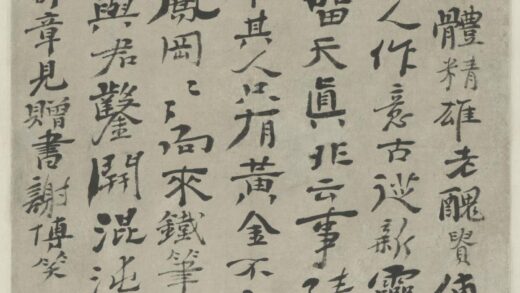 體精雄老醜
人作意古從新靈
留天真非云事
其人只有黃金不
鳳岡〻〻向來鐵筆
與君鑿開混沌
章見贈書謝博笑